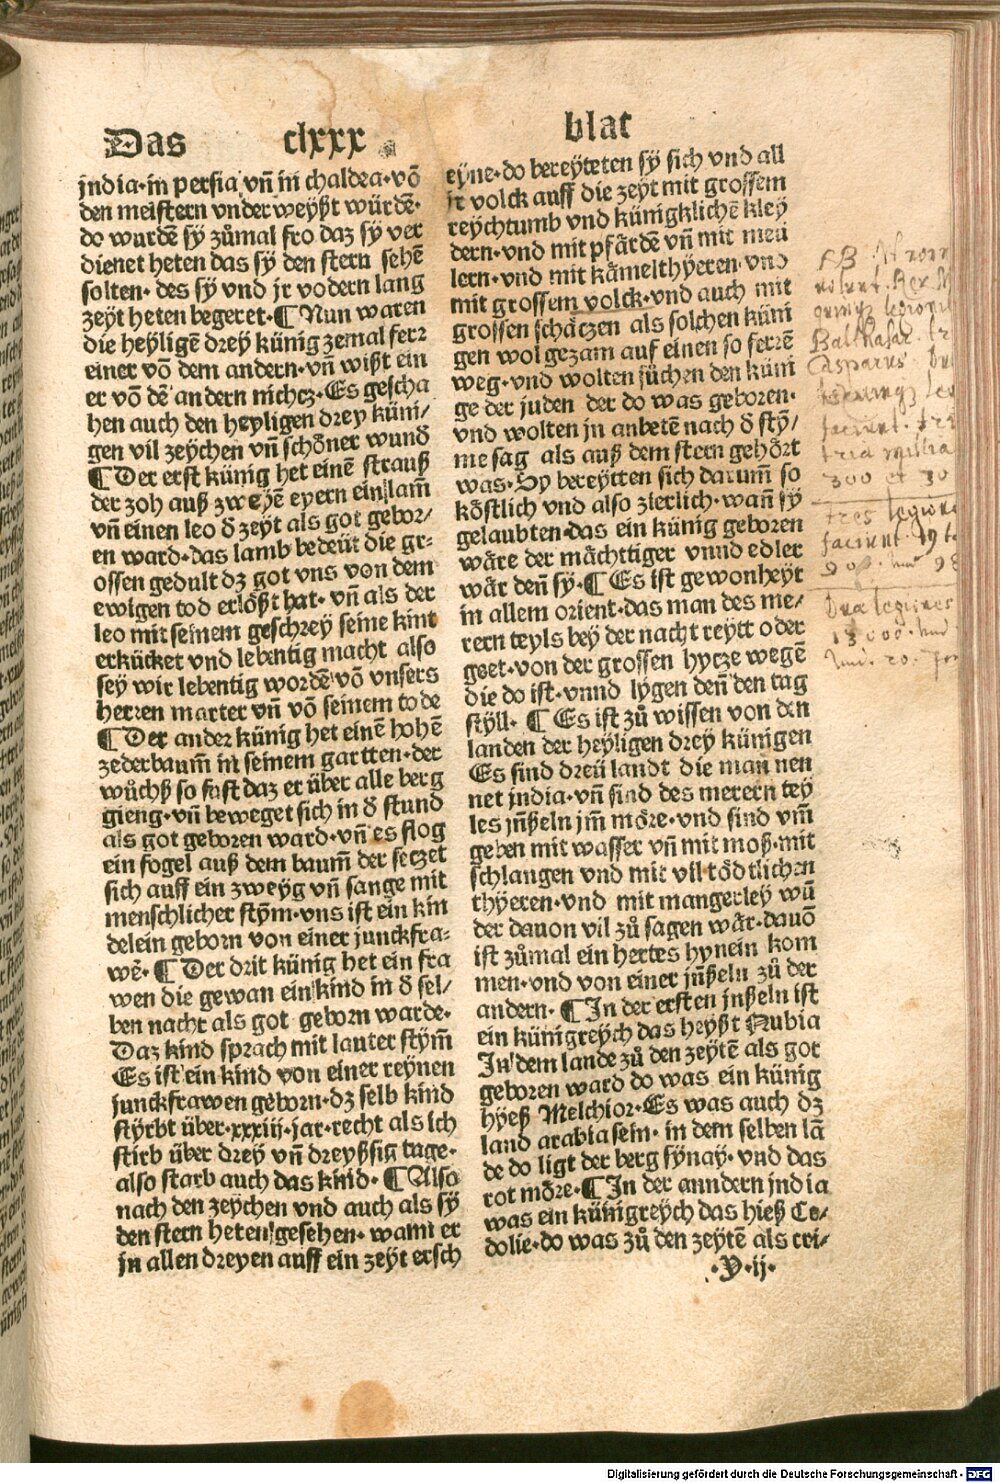 Das clxxx blat
india·in persia vñ in chaldea·võ
den meistern vnderweyßt würdẽ·
do wurdẽ sÿ zůmal fro daz sÿ ver
dienet heten das sÿ den stern sehẽ
solten· des sÿ vnd jr vodern lang
zeÿt heten begeret·¶ Nun waren
die heÿligẽ dreÿ künig zemal ferr
einer võ dem andern·vñ wißt ein
er võ dẽ andern nichcz·Es gescha
hen auch den heyligen drey küni/
gen vil zeÿchen vñ schöner wund̃
¶ Der erst künig het einẽ strauß
der zoh auß zweyẽ eyern ein lam̃
vñ einen leo ð zeÿt als got gebor/
en ward·das lamb bedeüt die gr-
ossen gedult dz got vns von dem
ewigen tod erlößt hat· vñ als der
leo mit seinem geschreÿ seine kint
erkücket vnd lebentig macht also
seÿ wir lebentig wordẽ võ vnsers
herren marter vñ võ seinem tode
¶ Der ander künig het einẽ hohẽ
zederbaum̃ in seinem gartten·der
wůchß so fast daz er über alle berg
gieng·vñ beweget sich in ð stund
als got geboren ward·vñ es flog
ein fogel auß dem baum̃ der seczet
sich auff ein zweÿg vñ sange mit
menschlicher stÿm·vns ist ein kin
delein geborn von einer junckfra-
wẽ·¶ Der drit künig het ein fra
wen die gewan ein kind in ð sel/
ben nacht als got geborn warde·
Daz kind sprach mit lauter stÿm̃
Es ist ein kind von einer reÿnen
junckfrawen geborn·dz selb kind
stÿrbt über·xxxiij·jar·recht als ich
stirb über dreÿ vñ dreÿßsig tage·
also starb auch das kind·¶ Also
nach den zeÿchen vnd auch als sÿ
den stern heten gesehen· wann er
in allen dreyen auff ein zeÿt ersch
eÿne·do bereÿteten sÿ sich vnd all
jr volck auff die zeÿt mit grossem
reÿchtumb vnd künigklichẽ kleÿ
dern·vnd mit pfärdẽ vñ mit meü
lern·vnd mit kämelthÿeren·vnd
mit grossem volck·vnd auch mit
grossen schäczen als solchen küni
gen wol gezam auf einen so ferrẽ
weg·vnd wolten sůchen den küni
ge der juden der do was geboren·
vnd wolten jn anbetẽ nach ð stÿ/
me sag als auß dem stern gehört
was·Sy bereÿtten sich darum̃ so
köstlich vnd also zierlich·wañ sÿ
gelaubten·das ein künig geboren
wäre der mächttiger vnnd edler
wär deñ sÿ·¶ Es ist gewonheÿt
in allem orient·das man des me/
rern teyls beÿ der nacht reÿtt oder
geet·von der grossen hycze wegẽ
die do ist·vnnd lÿgen deñ den tag
stÿll· ¶ Es ist zů wissen von den
landen der heÿligen dreÿ künigen
Es sind dreü landt die man nen
net jndia·vñ sind des merern teÿ
les jnßeln jm̃ möre·vnd sind vm̃
geben mit wasser vñ mit moß·mit
schlangen vnd mit vil tödtlichen
thÿeren·vnd mit mangerleÿ wũ
der dauon vil zů sagen wär·dauõ
ist zůmal ein hertes hynein kom
men·vnd von einer jnßeln zů der
andern· ¶ In der ersten jnßeln ist
ein künigreÿch das heÿßt Nubia
In dem lande zů den zeÿtẽ als got
geboren ward do was ein künig
hÿeß Melchior·Es was auch dz
land arabia sein· in dem selben lã
de do ligt der berg sÿnaÿ· vnd das
rot möre·¶ In der anndern jndia
was ein künigreÿch das hieß Co/
dolie·do was zů den zeÿtẽ als cri/
·Y·ij·
Rex
legiones
Balthasar
Casparus
faciunt
tria millia
300 et 30
tres legiones
faciunt 19
Dua legiones
13000
Digitalisierung gefördert durch die Deutsche Forschungsgemeinschaft - DFG